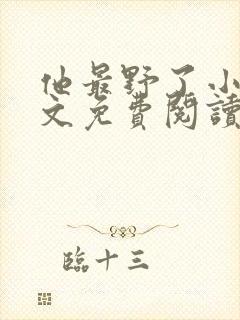 他最野了小
文免費閱讀
臨十三